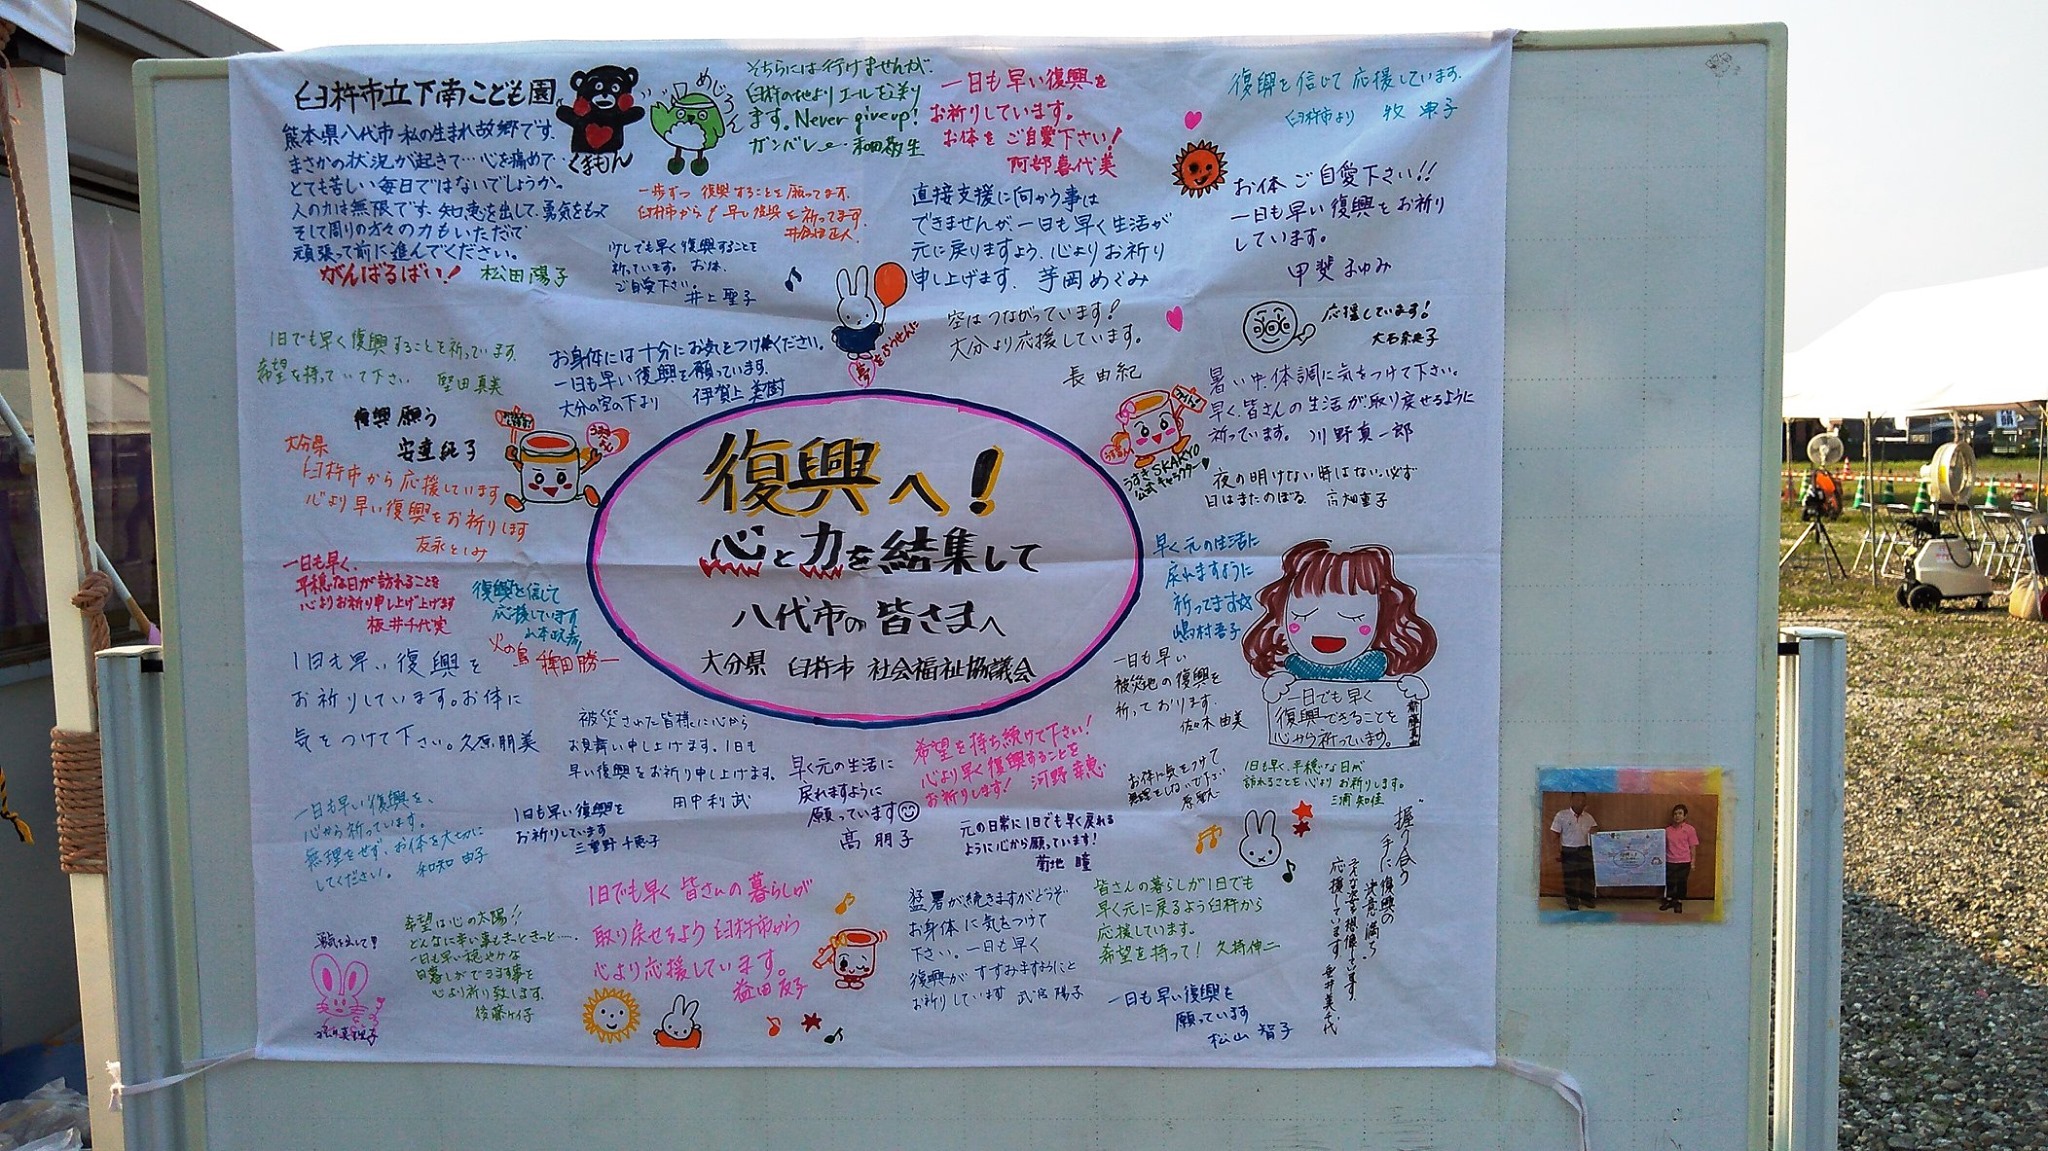 臼杵市立下南こども園
熊本県八代市 私の生まれ故郷です.
まさかの状況が起きて…心を痛めて…
とても苦しい毎日ではないでしょうか。
人の力は無限です、知恵を出して、勇気をもって
そして周りの方々の力もいただて
頑張って前に進んでください。
がんばるばい! 松田陽子
くまもん
めじろん
そちらには行けませんが、
臼杵の地よりエールを送り
ます。Never give up!
ガンバレー
一日も早い復興を
お祈りしています。
お体をご自愛下さい!
阿部喜代美
復興を信じて応援しています.
臼杵市より 牧
一歩ずつ 復興することを願ってます.
臼杵市から 早い復興を祈ってます.
少しでも早く復興することを
祈っています。お体、
ご自愛下さい。
井上聖子
直接支援に向かう事は
できませんが、一日も早く生活が
元に戻りますよう、心よりお祈り
申し上げます、芋岡めぐみ
お体ご自愛下さい!!
一日も早い復興をお祈り
しています。
甲斐まゆみ
夢をふうせんに
空はつながっています!
大分より応援しています。
長由紀
応援しています!
大石奈央子
1日でも早く復興することを祈っています.
希望を持っていて下さい 堅田真美
お身体には十分にお気をつけください。
一日も早い復興を願っています.
大分の空の下より 伊賀上美樹
復興願う
安達純子
暑い中、体調に気をつけて下さい。
早く、皆さんの生活が取り戻せるように
祈っています。川野真一郎
うすきSKAKYO
公式キャラクター♥
大分県
臼杵市から応援しています
心より早い復興をお祈りします
友永としみ
復興へ!
心と力を結集して
八代市の皆さまへ
大分県 臼杵市 社会福祉協議会
夜の明けない時はない、必ず
日はまたのぼる. 高畑重子
一日も早く、
平穏な日が訪れることを
心よりお祈り申し上げ上げます
板井千代実
復興を信じて
応援しています
火の鳥 稗田勝一
早く元の生活に
戻れますように
祈ってます☆
嶋村吾子
1日も早い復興を
お祈りしています。お体に
気をつけて下さい。久原朋美
一日も早い
被災地の復興を
祈っております.
佐々木由美
一日でも早く
復興できることを
心から祈っています。
被災された皆様に心から
お見舞い申し上げます、1日も
早い復興をお祈り申し上げます.
田中利武
早く元の生活に
戻れますように
願っています
高 朋子
希望を持ち続けて下さい!
心より早く復興することを
お祈りします! 河野幸恵
お体に気をつけて
無理をしないで下さい
1日も早く、平穏な日が
訪れることを心よりお祈りします。
三浦知佳
一日も早い復興を、
心から祈っています。
無理をせず、お体を大切に
してください。 和知由子
1日も早い復興を
お祈りしています
三重野千恵子
元の日常に1日でも早く戻れる
ように心から願っています!
菊地瞳
握り合う
手に復興の
決意満ち
そんな姿を想像しています.
応援しています 亜井美千代
希望は心の太陽!!
どんなに辛い事もきっときっと……
一日も早い穏やかな
日暮しができます事を
心より祈り致します.
後藤ケイ子
1日でも早く皆さんの暮らしが
取り戻せるよう臼杵市から
心より応援しています。
益田友子
猛暑が続きますがどうぞ
お身体に気をつけて
下さい。一日も早く
復興がすすみますようにと
お祈りしています 武宮陽子
皆さんの暮らしが1日でも
早く元に戻るよう臼杵から
応援しています。
希望を持って! 久持伸二
一日も早い復興を
願っています
松山智子